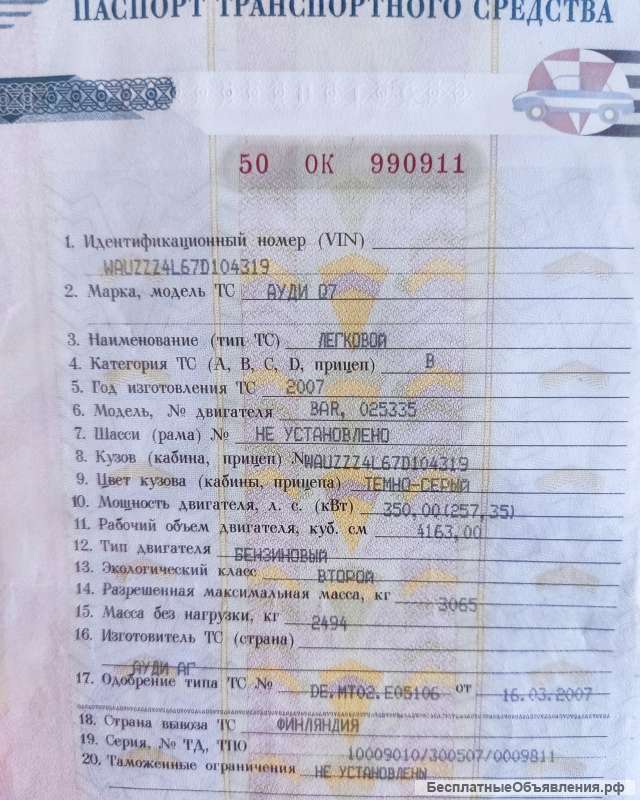 ПАСПОРТ ТРАНСПОРТНОГО СРЕДСТВА
50 ОК 990911
1. Идентификационный номер (VIN)
WAUZZZ4L67D104319
2. Марка, модель ТС АУДИ Q7
3. Наименование (тип ТС) ЛЕГКОВОЙ
4. Категория ТС (A, B, C, D, прицеп) B
5. Год изготовления ТС 2007
6. Модель, № двигателя BAR, 025335
7. Шасси (рама) № НЕ УСТАНОВЛЕНО
8. Кузов (кабина, прицеп) № WAUZZZ4L67D104319
9. Цвет кузова (кабины, прицепа) ТЕМНО-СЕРЫЙ
10. Мощность двигателя, л. с. (кВт) 350,00(257,35)
11. Рабочий объем двигателя, куб. см 4163,00
12. Тип двигателя БЕНЗИНОВЫЙ
13. Экологический класс ВТОРОЙ
14. Разрешенная максимальная масса, кг 3065
15. Масса без нагрузки, кг 2494
16. Изготовитель ТС (страна)
АУДИ АГ
17. Одобрение типа ТС № DE.MT02.E05106 от 16.03.2007
18. Страна вывоза ТС ФИНЛЯНДИЯ
19. Серия, № ТД, ТПО 10009010/300507/0009811
20. Таможенные ограничения НЕ УСТАНОВЛЕНЫ
БесплатныеОбъявления.рф